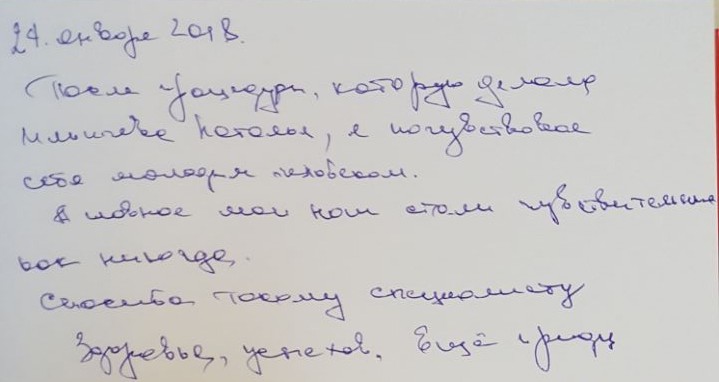 24. января 2018.
После процедуры, которую делала
Ильичёва Наталья, я почувствовал
себя молодым человеком.
А главное мои ноги стали чувствительные
как никогда.
Спасибо такому специалисту
Здоровья, успехов. Ещё приду